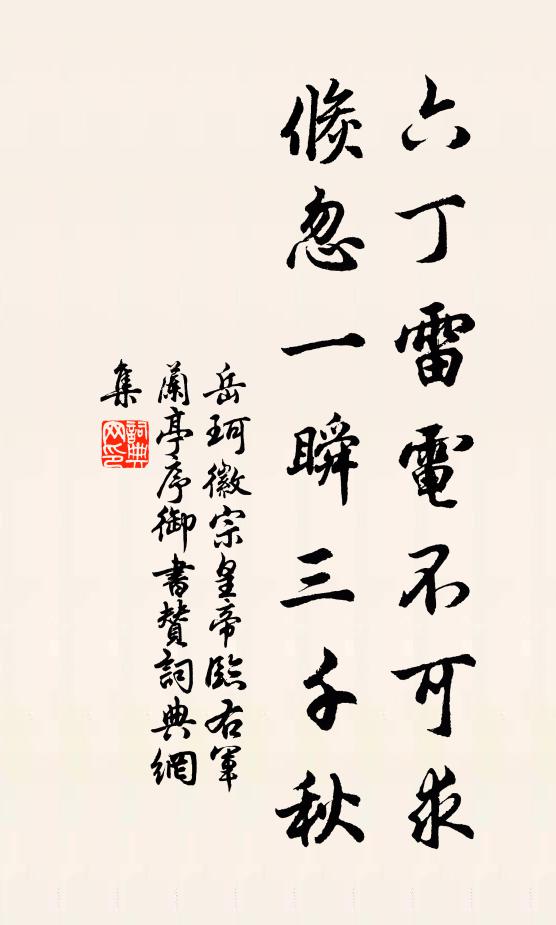 六丁雷電不可求
倏忽一瞬三千秋
岳珂徽宗皇帝臨右軍
蘭亭序御書贊詞典網
集
詞典
网印